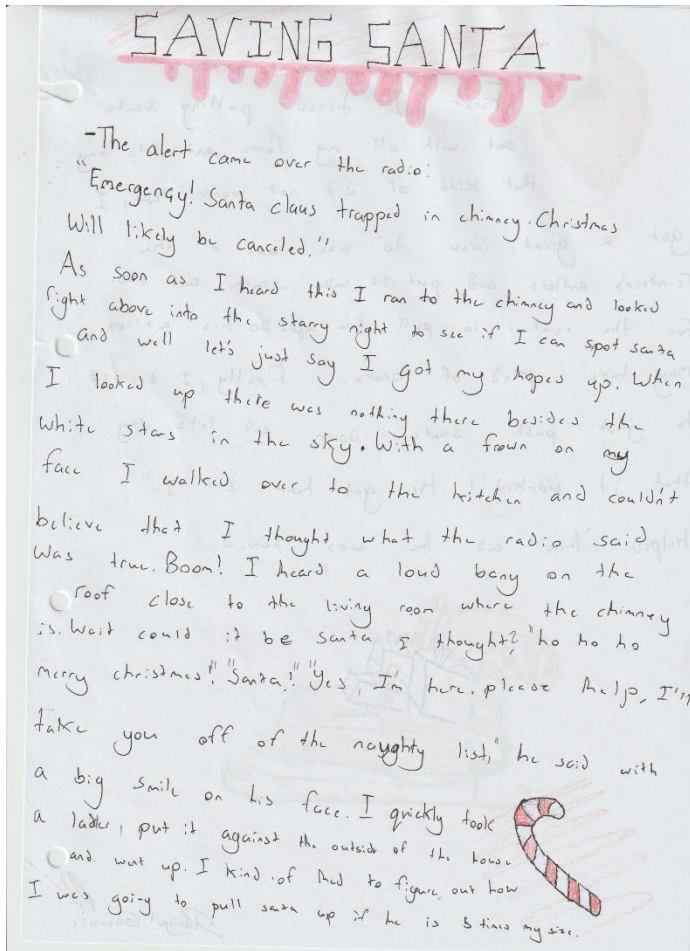 SAVING SANTA
-The alert came over the radio:
"Emergency! Santa claus trapped in chimney. Christmas
Will likely be canceled."
As soon as I heard this I ran to the chimney and looked
right above into the starry night to see if I can spot santa
and well let's just say I got my hopes up. When
I looked up there was nothing there besides the
white stars in the sky. With a frown on my
face I walked over to the kitchen and couldn't
believe that I thought what the radio said
was true. Boom! I heard a loud bang on the
roof close to the living room where the chimney
is. Wait could it be santa I thought? "ho ho ho
merry christmas". "Santa!" "Yes, I'm here. please help, I'll
take you off of the naughty list," he said with
a big smile on his face. I quickly took
a ladder, put it against the outside of the house
and went up. I kind of had to figure out how
I was going to pull santa up if he is 3 times my size.